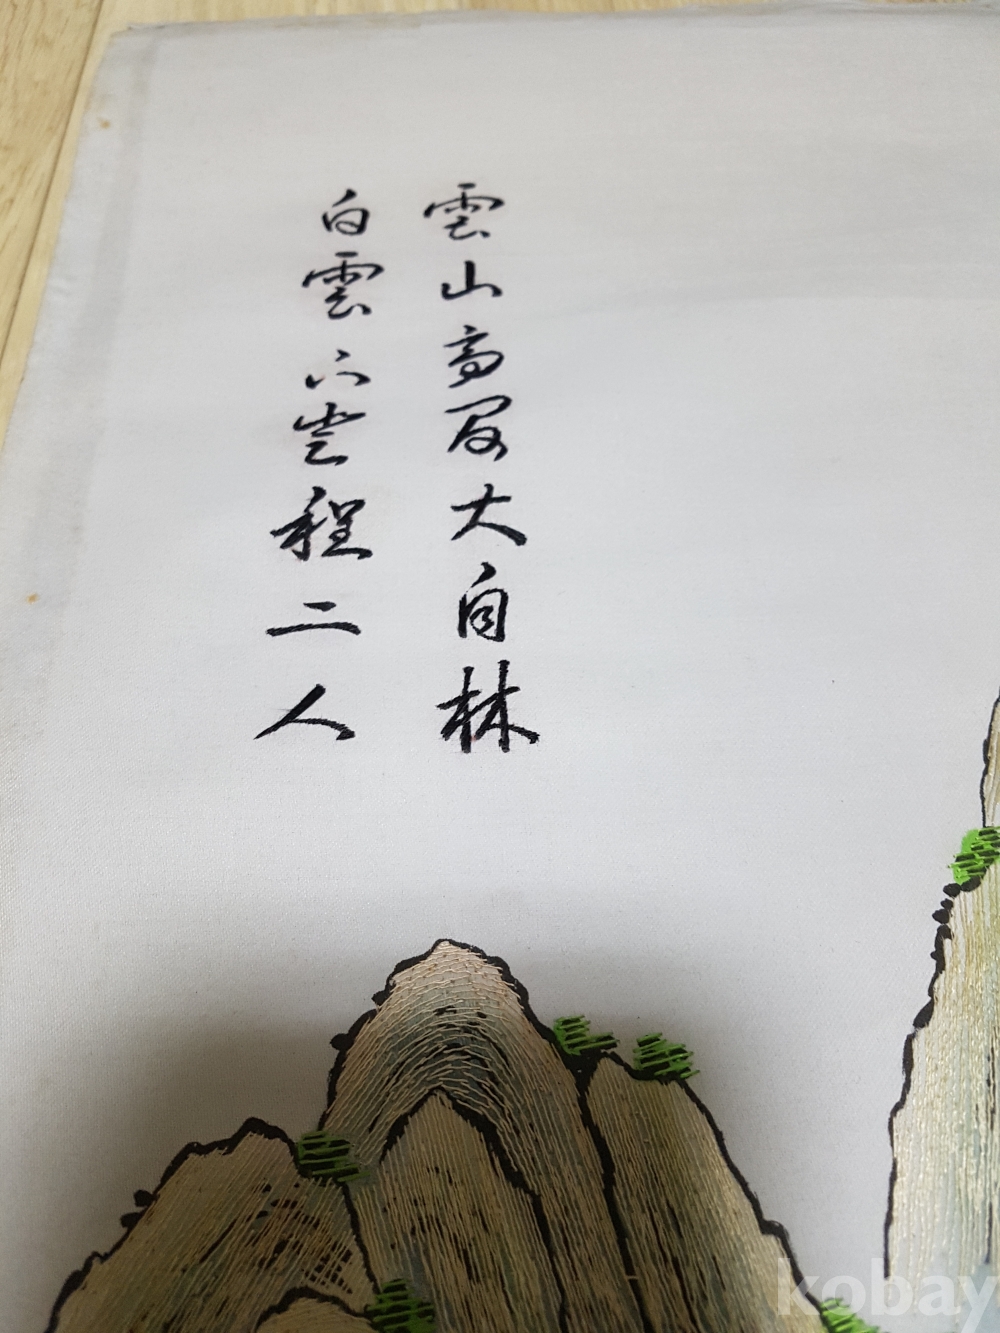 雲山高尋大自林
白雲六岩程二人
kobay